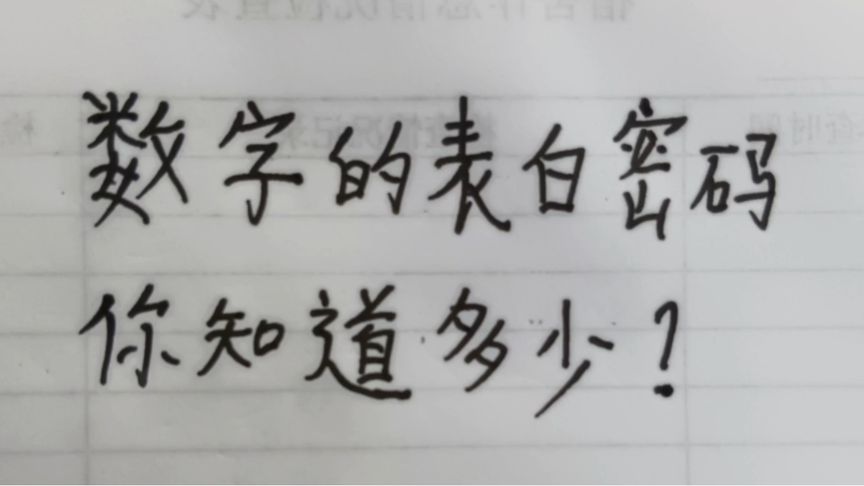 数字的表白密码
你知道多少?